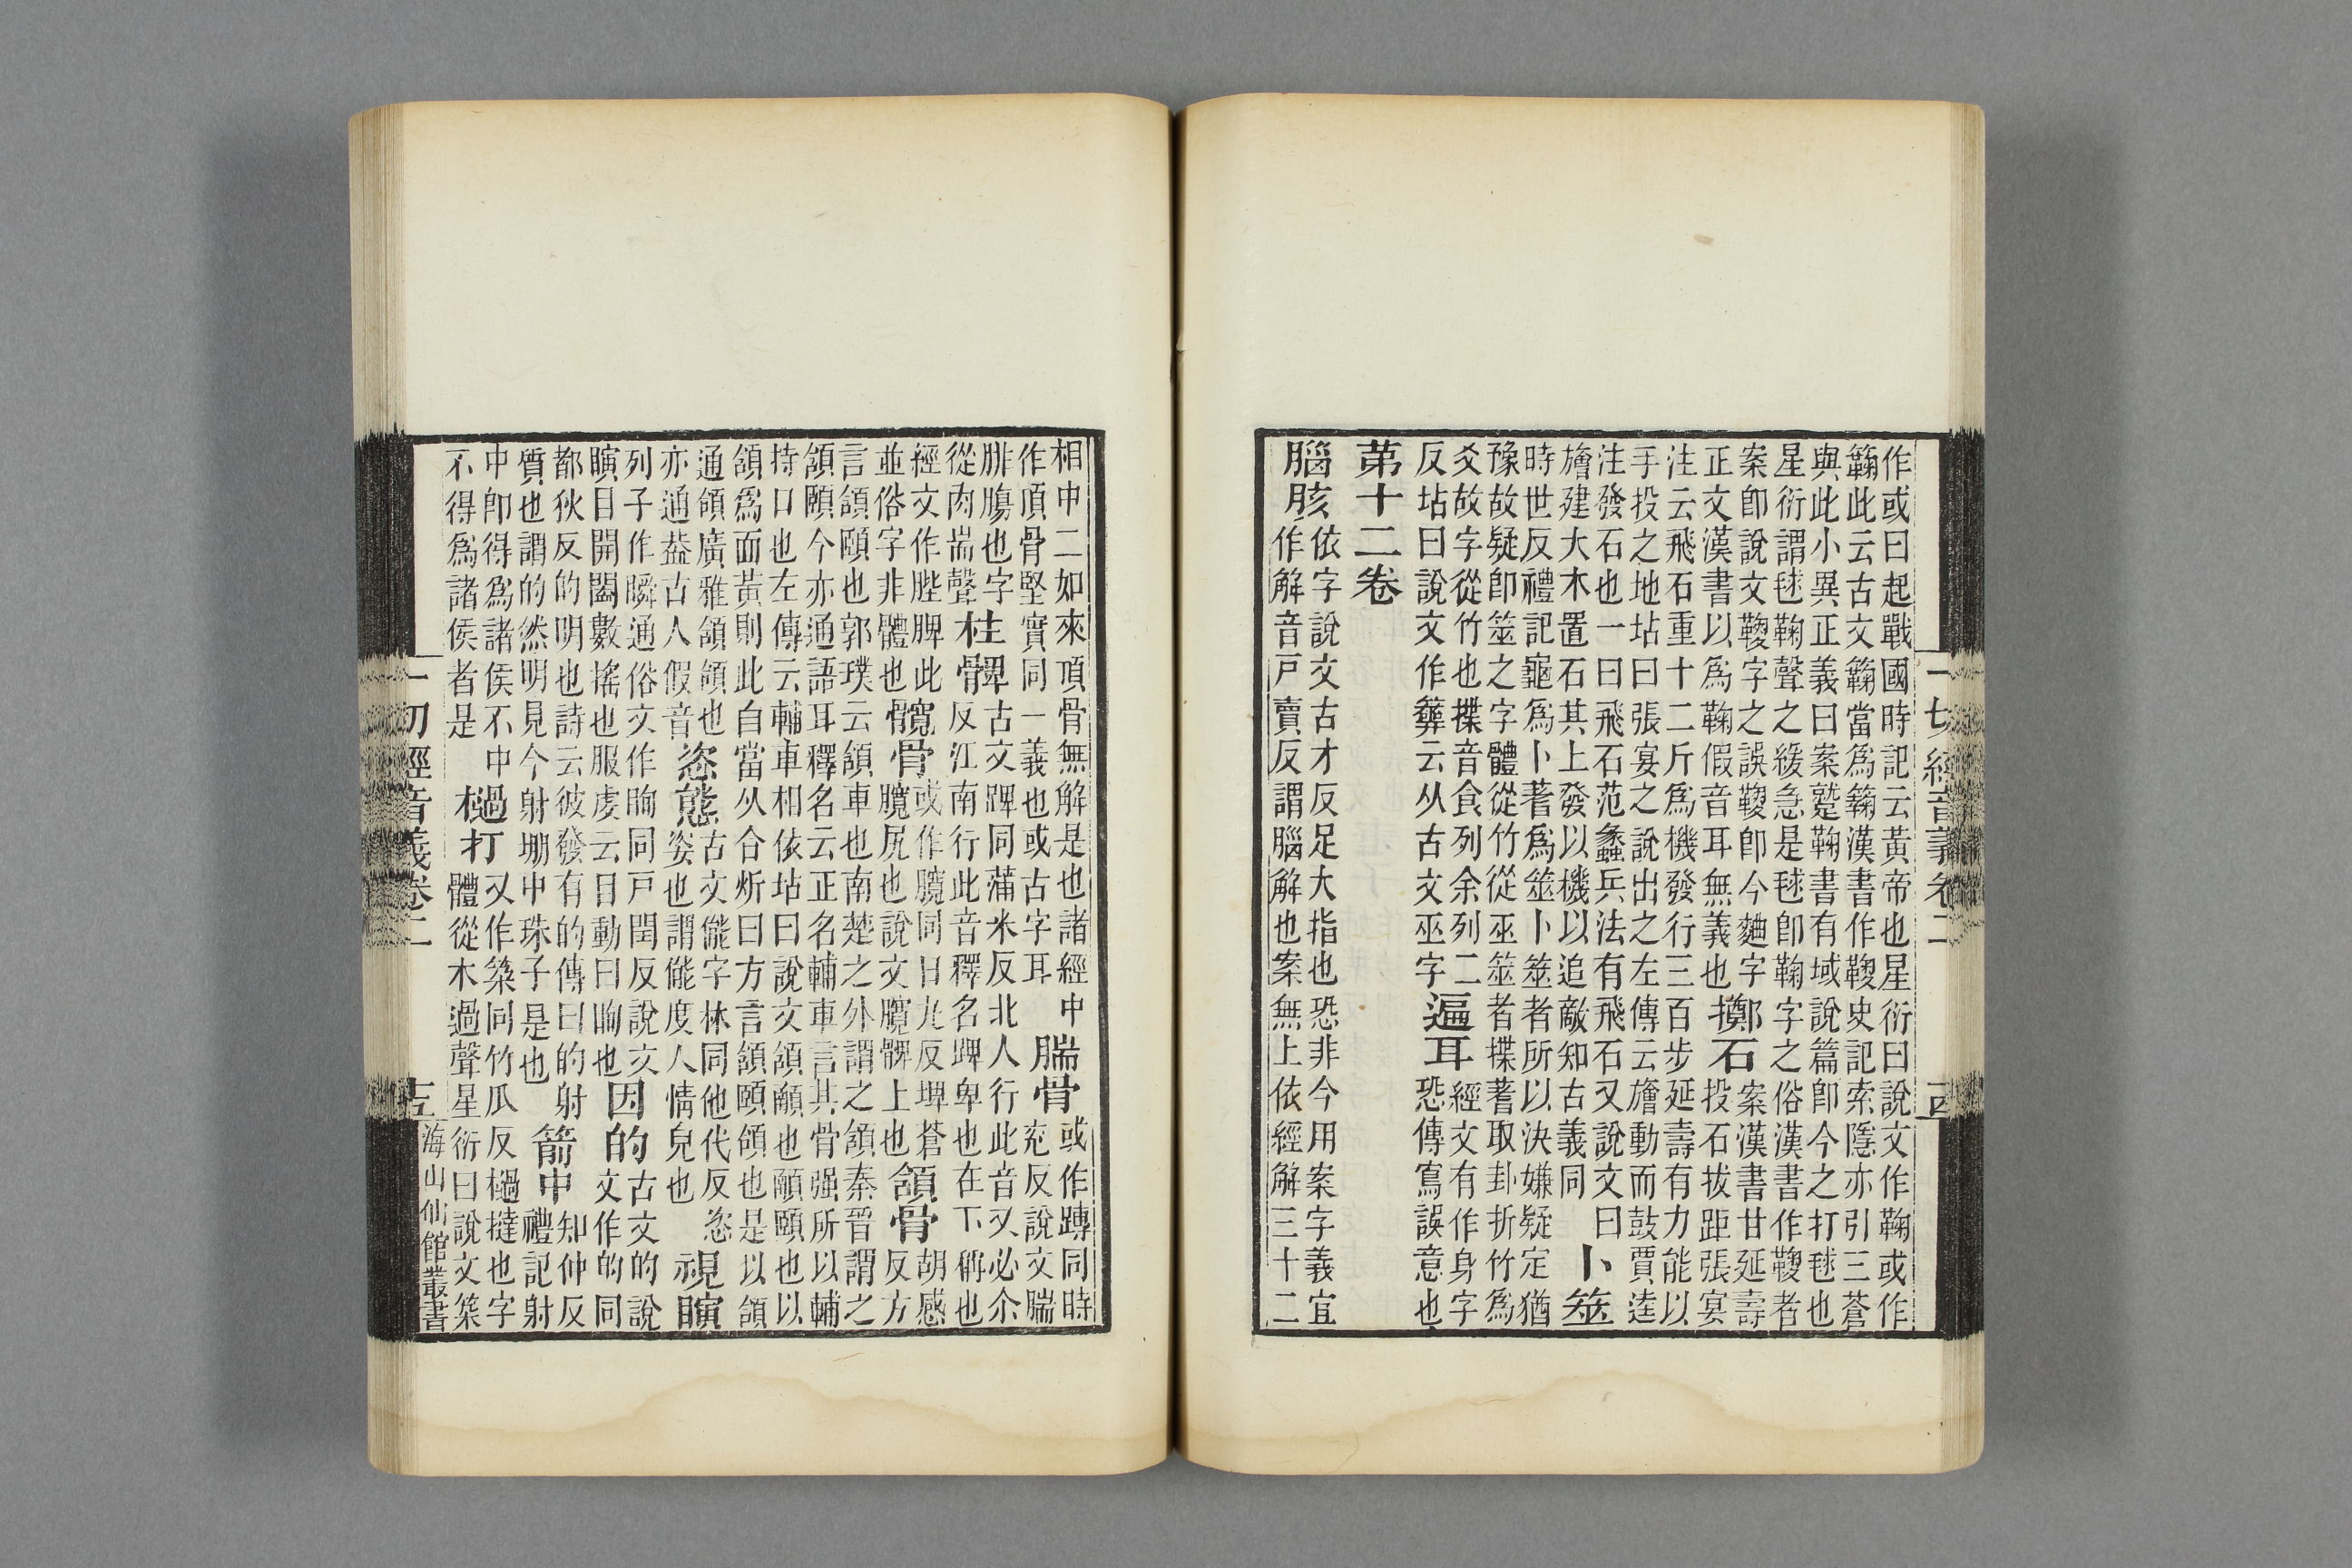 作或曰起戰國時記云黃帝也星衍曰說文作鞠或作
籟此云古文籟當爲籟漢書作鞭史記索隱亦引三蒼
與此小異正義曰案蹵鞠書有域說篇卽今之打毬也
星衍謂毬鞠聲之緩急是毬卽鞠字之俗漢書作鞭者
案卽說文鞭字之誤鞭卽今麯字
正文漢書以爲鞠假音耳無義也
擲石
案漢書甘延壽
投石拔距張宴
注云飛石重十二斤爲機發行三百步延壽有力能以
手投之地坫曰張宴之說出之左傳云旝動而鼓賈逵
注發石也一曰飛石范蠡兵法有飛石又說文曰
旝建大木置石其上發以機以追敵知古義同
卜筮
時世反禮記龜爲卜蓍爲筮卜筮者所以決嫌疑定猶
豫故疑卽筮之字體從竹從巫筮者揲蓍取卦折竹爲
爻故字從竹也揲音食列余列二
反坫曰說文作𥷚云从古文巫字
逼耳
經文有作身字
恐傳寫誤意也
第十二卷
腦胲
依字說文古才反足大指也恐非今用案字義宜
作解音戸賣反謂腦解也案無上依經解三十二
一切經音義卷二
十四
相中二如來頂骨無解是也諸經中
作頂骨堅實同一義也或古字耳
腨骨
或作蹲同時
兖反說文腨
腓腸也字
從肉耑聲
柱髀
古文踔同蒲米反北人行此音又必尒
反江南行此音釋名踔卑也在下稱也
經文作䏶脾此
並俗字非體也
髖骨
或作臗同口丸反埤蒼
臗尻也說文臗髀上也
頷骨
胡感
反方
言頷頤也郭璞云頷車也南楚之外謂之頷秦晉謂之
頷頤今亦通語耳釋名云正名輔車言其骨强所以輔
持口也左傳云輔車相依坫曰說文頷顄也顄頤也以
頷爲面黃則此自當从合炘曰方言頷頤頷也是以頷
通頷廣雅頷頷也
亦通葢古人假音
恣態
古文㑷字林同他代反恣
姿也謂㑷度人情皃也
視瞚
列子作瞬通俗文作眴同戸閏反說文
瞚目開闔數搖也服虔云目動曰眴也
因的
古文的說
文作的同
都狄反的明也詩云彼發有的傳曰的射
質也謂的然明見今射堋中珠子是也
箭中
知仲反
禮記射
中卽得爲諸侯不中
不得爲諸侯者是
檛打
又作築同竹瓜反檛撻也字
體從木過聲星衍曰說文築
一切經音義卷二
十五
海山仙館叢書